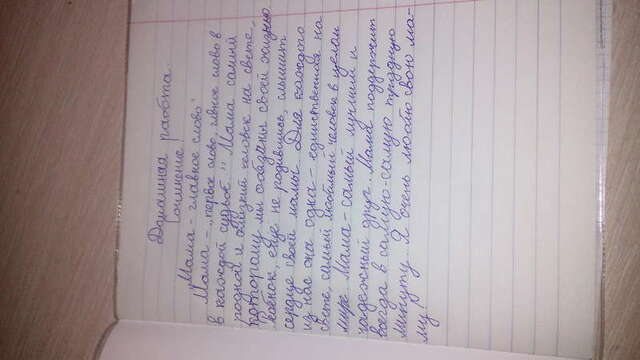 Домашняя работа.
Сочинение.
"Мама - главное слово"
Мама - "первое слово, главное слово в
в каждой судьбе." Мама самый
родной и близкий человек на свете,
которому мы обязаны своей жизнью.
Ребёнок еще не родившись, слышит
сердце своей мамы. Для каждого
из нас она одна - единственная на
свете, самый любимый человек в целом
мире. Мама - самый лучший и
надежный друг. Мама поддержит
всегда в самую-самую трудную
минуту. Я очень люблю свою ма-
му!